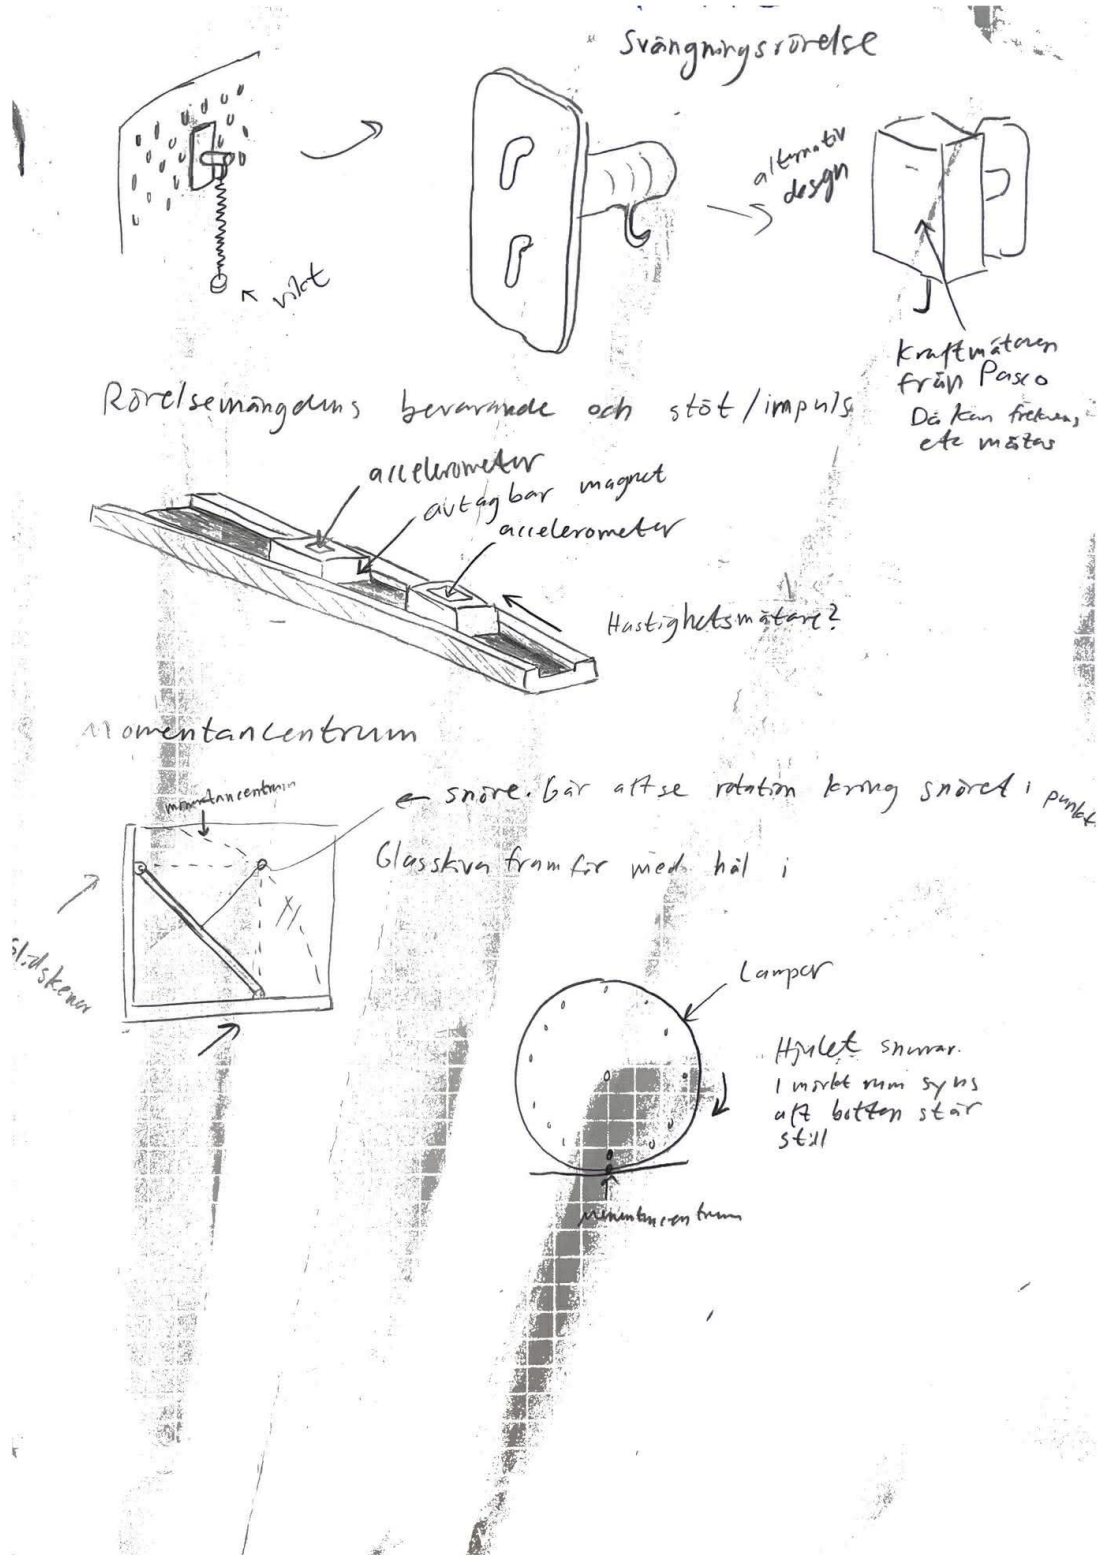 Svängningsrörelse
vikt
alternativ
design
Kraftmätaren
från Pasco
Då kan frekvens
etc mätas
Rörelsemängdens bevarande och stöt/impuls
accelerometer
avtagbar magnet
accelerometer
Hastighetsmätare?
Momentancentrum
momentancentrum
← snöre. Går att se rotation kring snöret i punkt.
Glasskiva framför med hål i
Glidskenor
Lampor
Hjulet snurrar.
I mörkt rum syns
att botten står
still
Momentancentrum